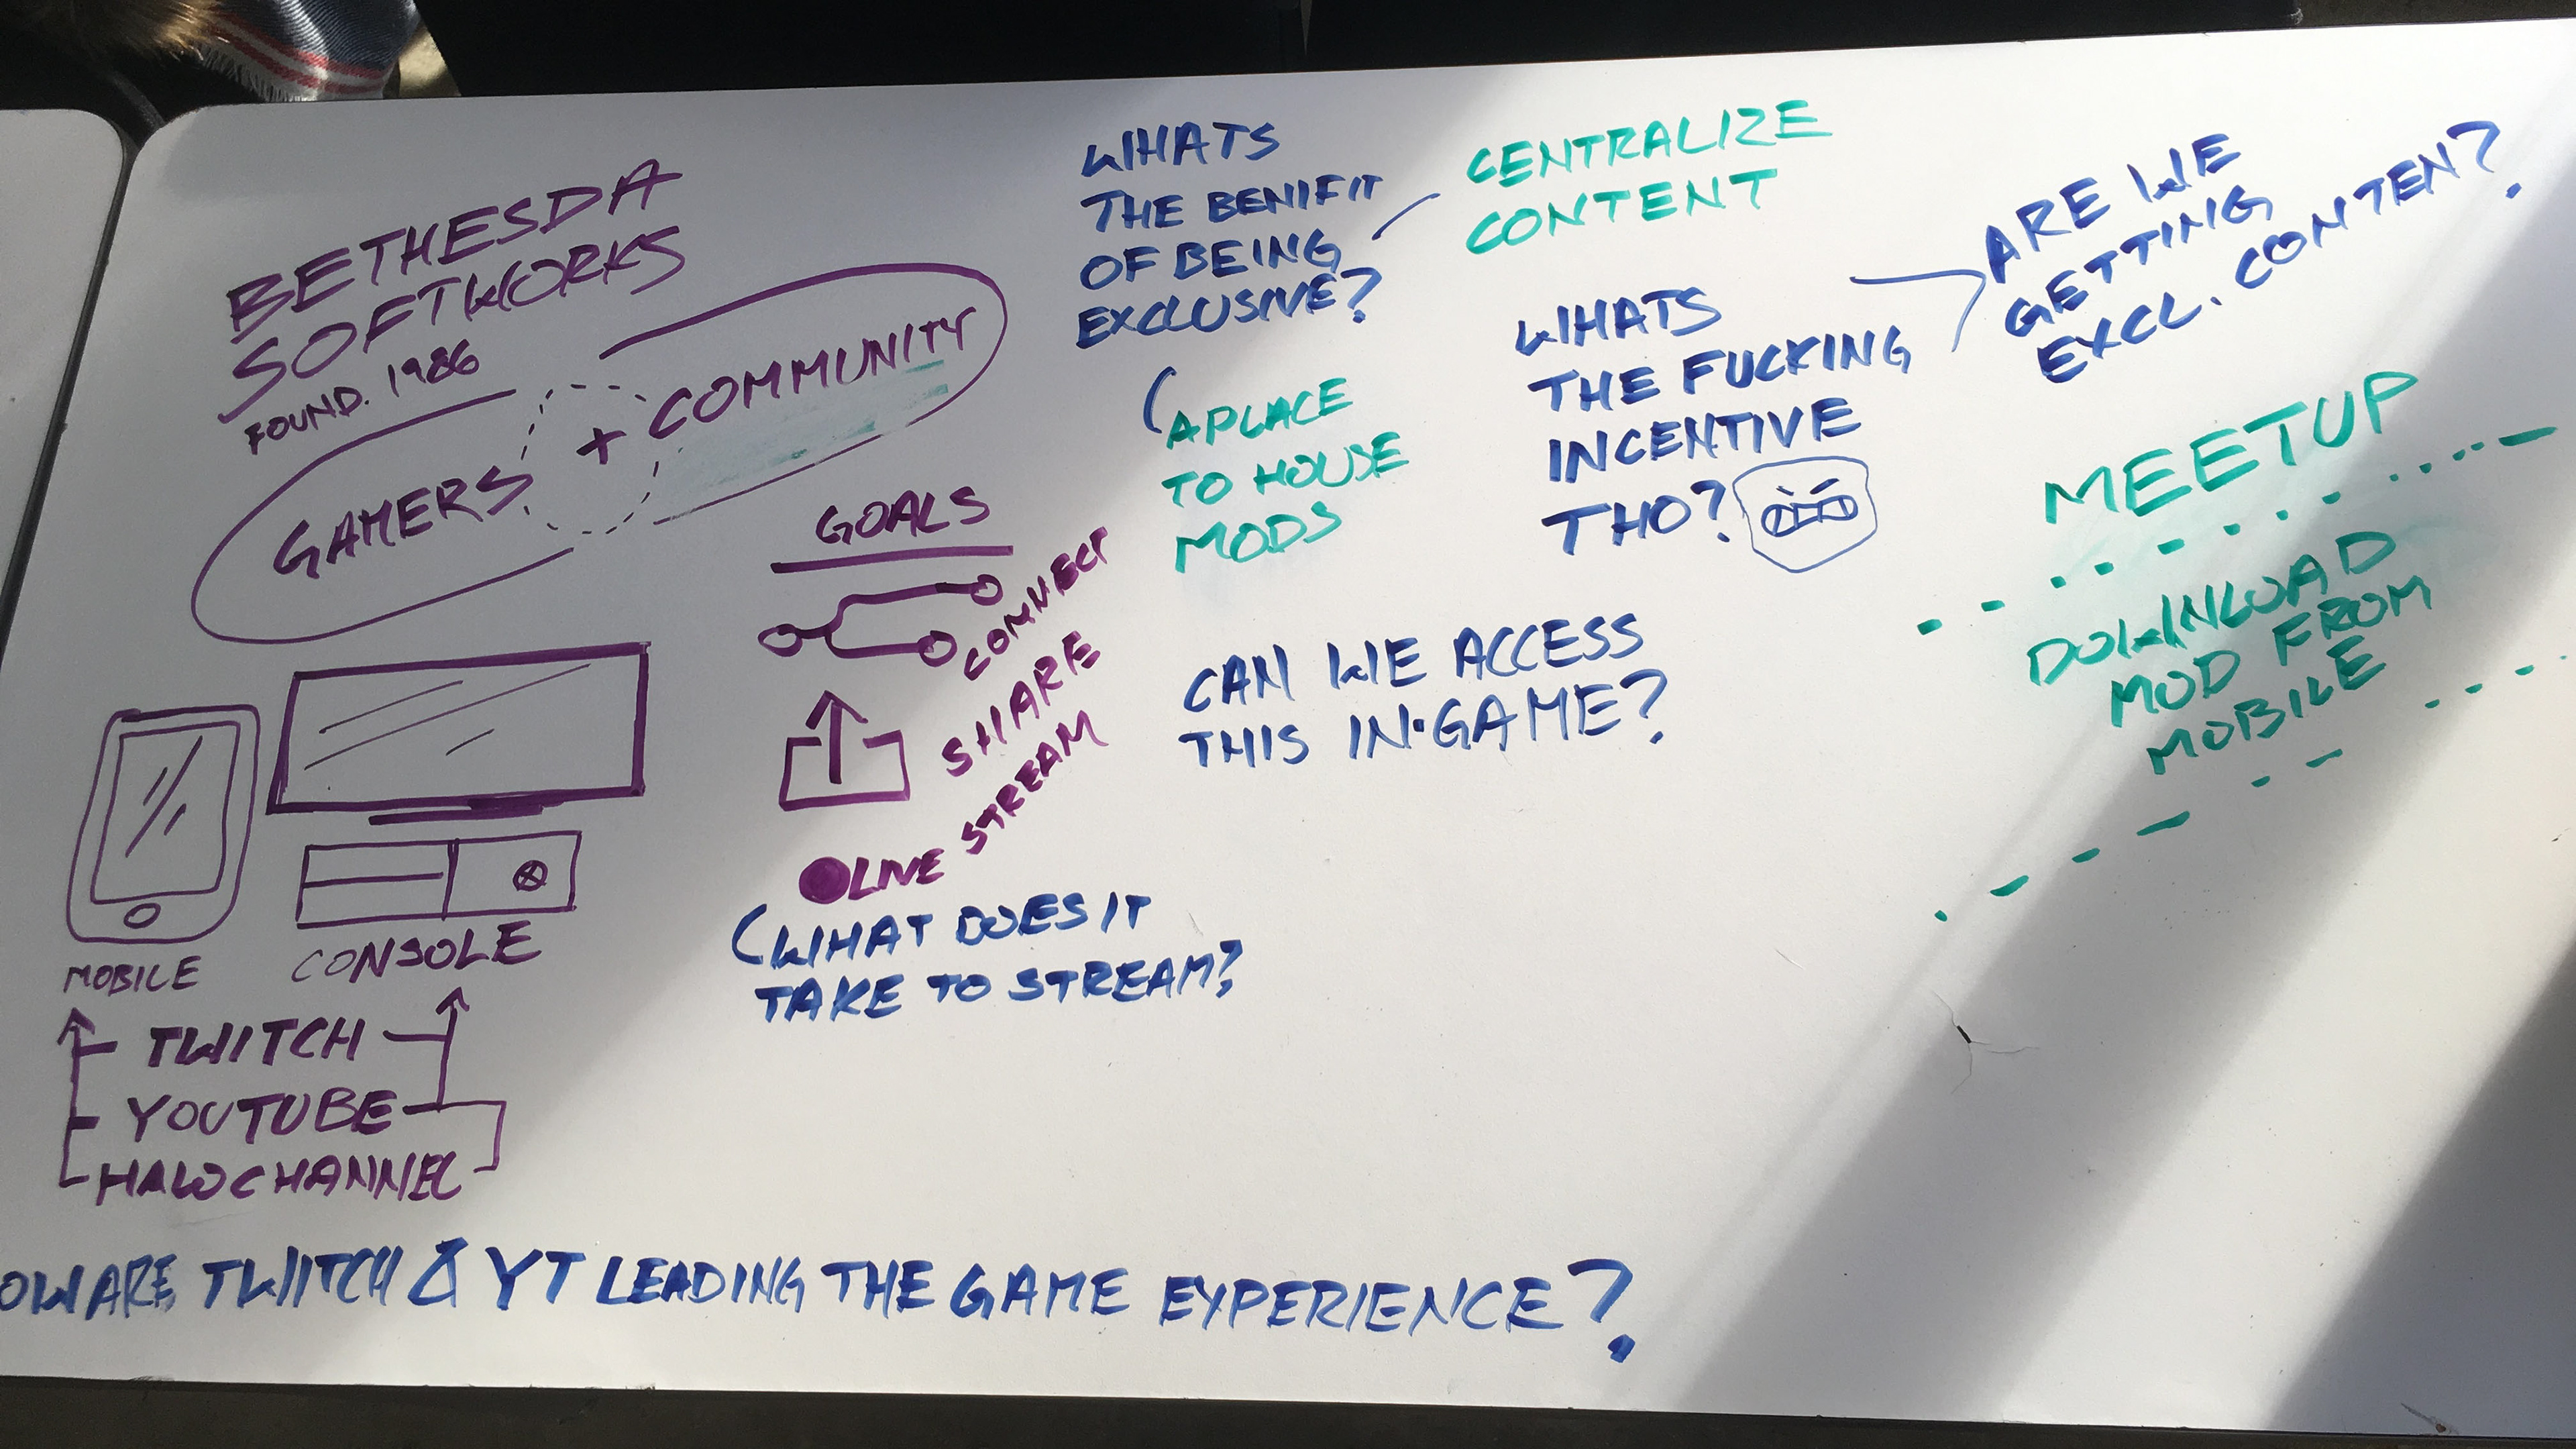 BETHESDA
SOFTWORKS
FOUND. 1986
GAMERS + COMMUNITY
GOALS
CONNECT
SHARE
LIVE STREAM
(WHAT DOES IT
TAKE TO STREAM?
MOBILE
CONSOLE
TWITCH
YOUTUBE
HALOCHANNEL
WHATS
THE BENIFIT
OF BEING
EXCLUSIVE?
CENTRALIZE
CONTENT
(A PLACE
TO HOUSE
MODS
WHATS
THE FUCKING
INCENTIVE
THO?
ARE WE
GETTING
EXCL. CONTENT?
CAN WE ACCESS
THIS IN-GAME?
MEETUP
DOWNLOAD
MOD FROM
MOBILE
OW ARE TWITCH & YT LEADING THE GAME EXPERIENCE?